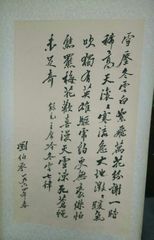 雪壓冬雲白絮飛萬花紛謝一時
稀高天滾々寒流急大地微々暖氣
吹獨有英雄驅虎豹更無豪傑怕
熊羆梅花歡喜漫天雪凍死蒼蠅
未足奇
毛主席冬雲七律
劉伯 一九六四年春